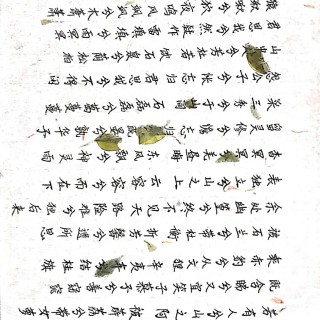 若有人兮山之阿 被薜荔兮带女萝
既含睇兮又宜笑 子慕予兮善窈窕
乘赤豹兮从文狸 辛夷兮结桂旗
被石兰兮带杜衡 折芳馨兮遗所思
余处幽篁兮终不见天 路险难兮独后来
表独立兮山之上 云容容兮而在下
杳冥冥兮羌昼晦 东风飘兮神灵雨
留灵修兮憺忘归 岁既晏兮孰华予
采三秀兮于山间 石磊磊兮葛蔓蔓
怨公子兮怅忘归 君思我兮不得闲
山人兮芳杜若 饮石泉兮荫松柏
君思我兮然疑作 雷填填兮雨冥冥
猿啾啾兮狖夜鸣 风飒飒兮木萧萧